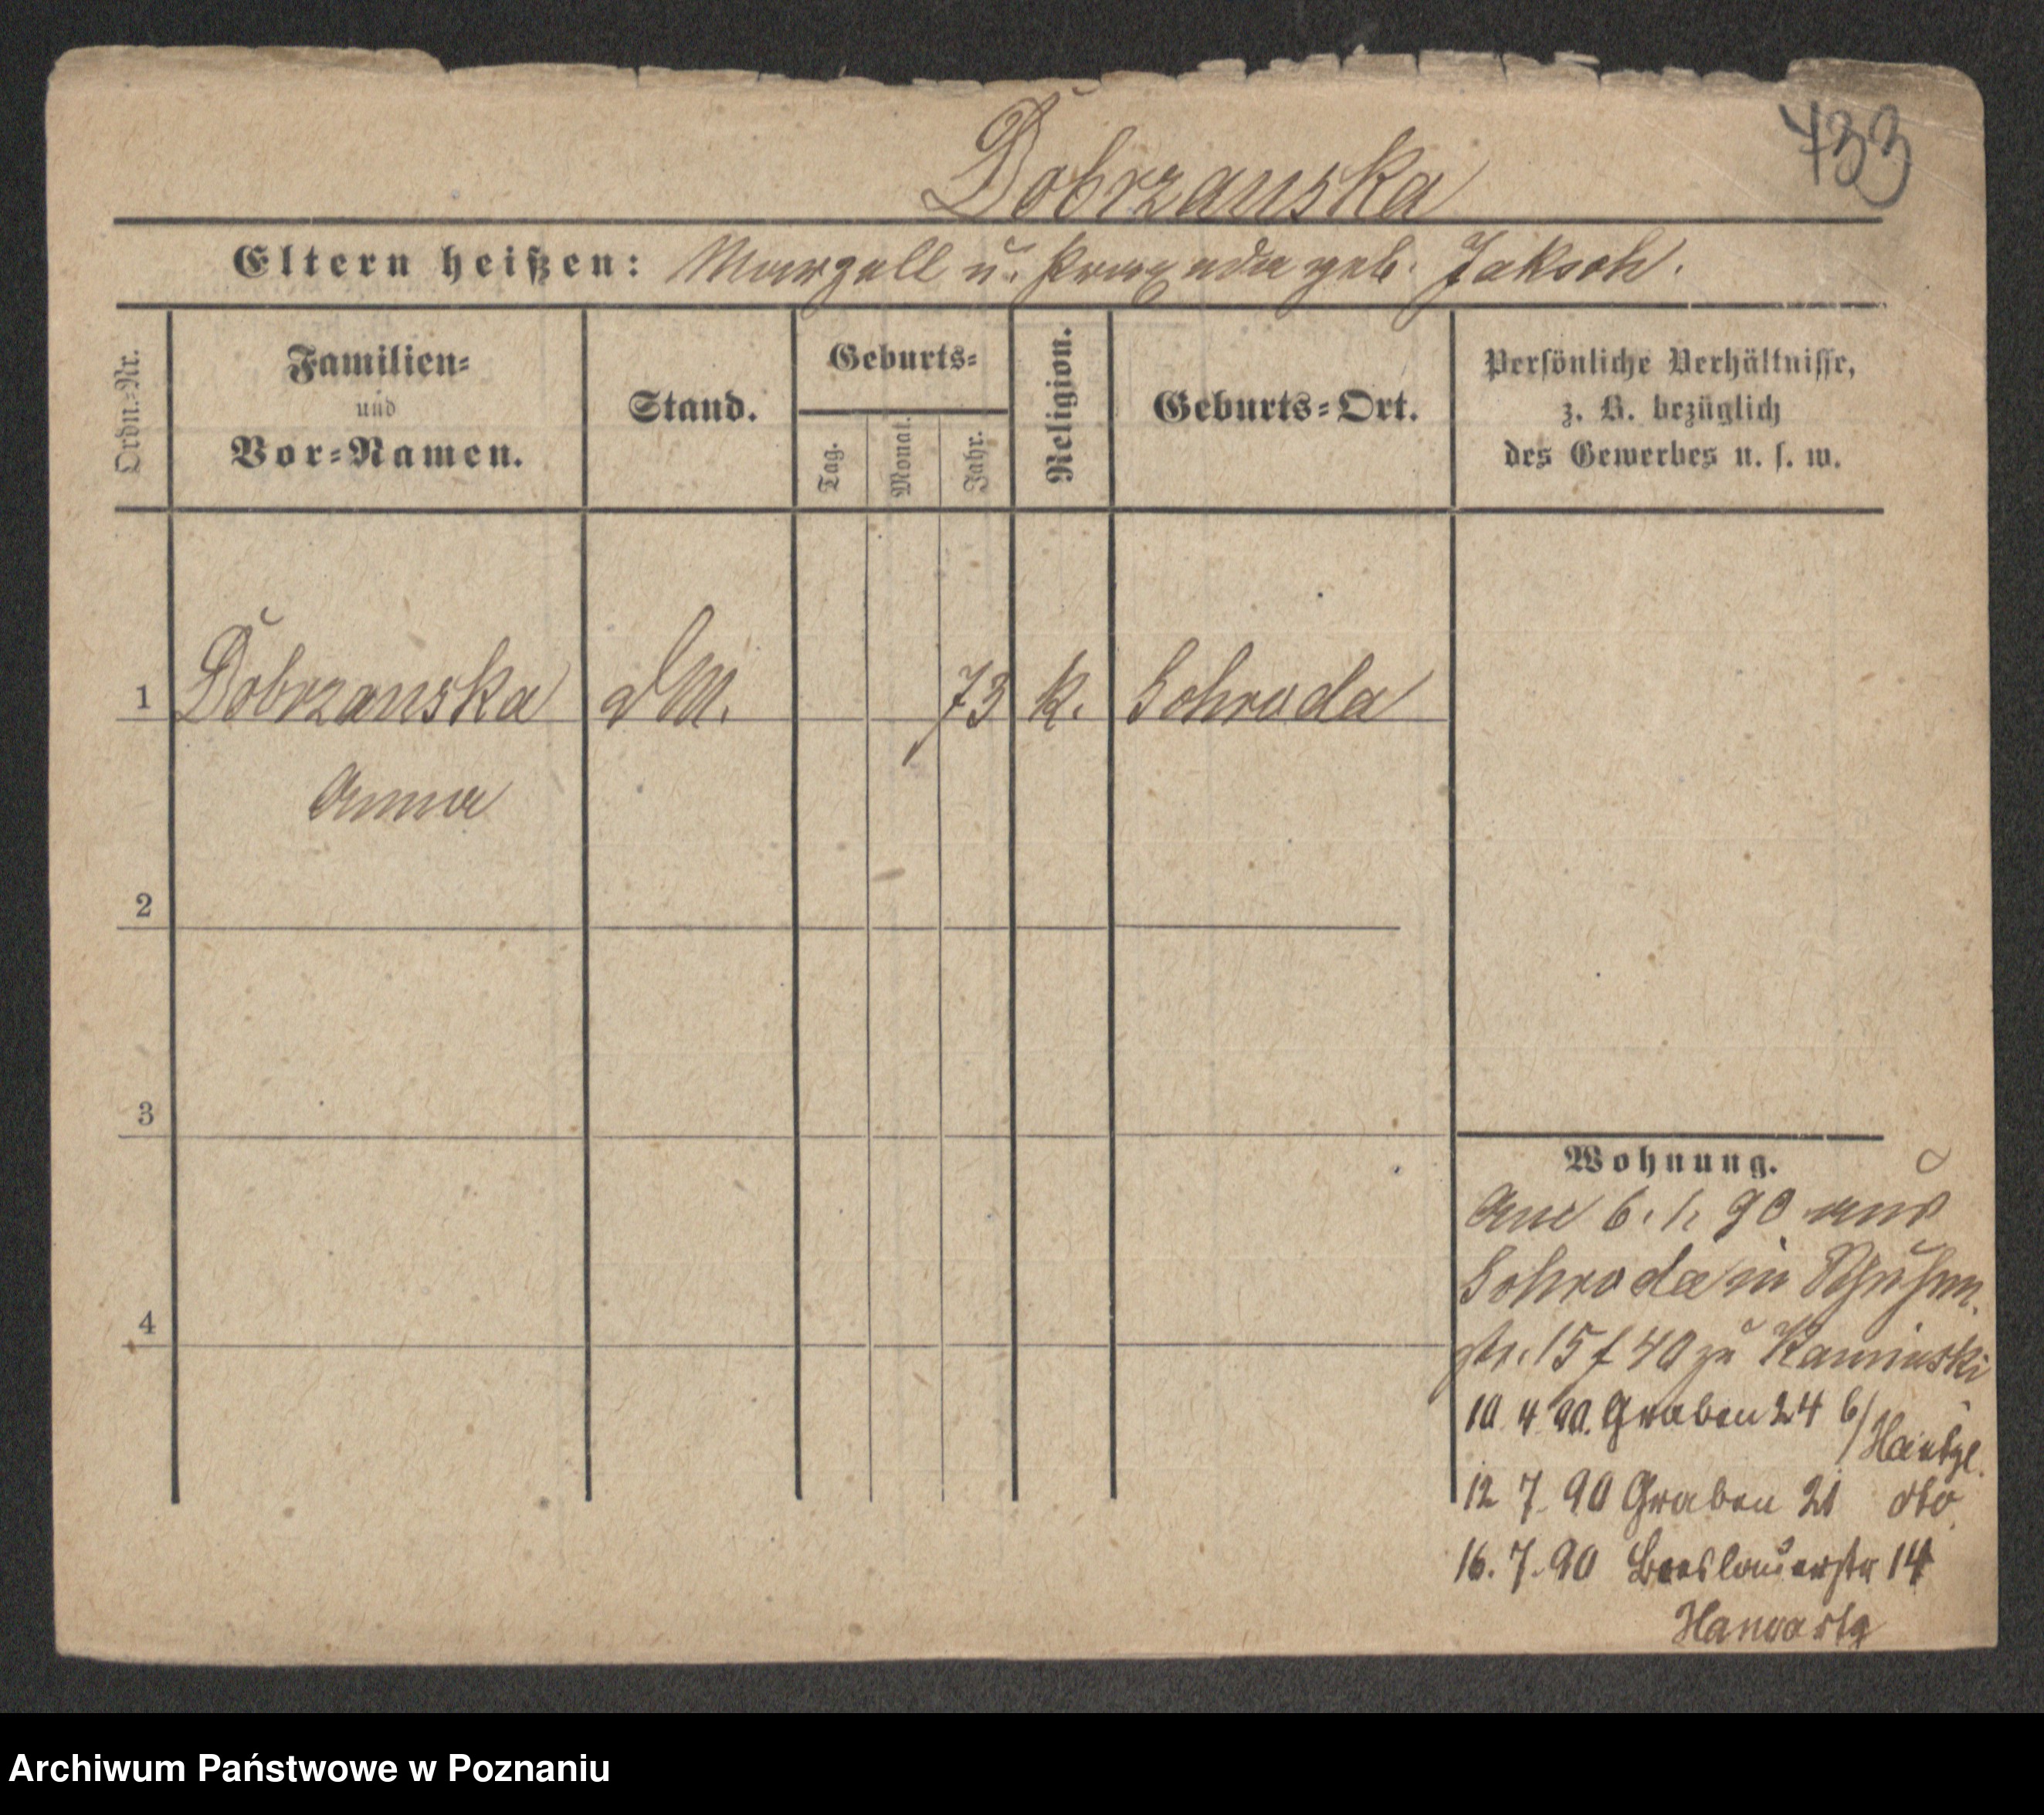 733
Dobrzanska
Eltern heißen: Marzell u. Praxeda geb. Jaksch.
Ordn.-Nr.
Familien-
und
Vor-Namen.
Stand.
Geburts-
Tag.
Monat.
Jahr.
Religion.
Geburts-Ort.
Persönliche Verhältnisse,
z. B. bezüglich
des Gewerbes u. s. w.
1 Dobrzanska dM. 73 k. Schroda
Anna
2
3
4
Wohnung.
Am 6. 1. 90 aus
Schroda in
str. 15 f 40 zu Kaminski
10 4 90. Graben 24 b/
12 7. 90 Graben 21 dto
16. 7. 90 Breslauerstr 14
Archiwum Państwowe w Poznaniu